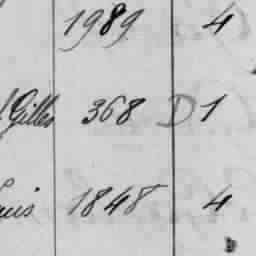 1989 4
Gilles 368 D 1
1848 4